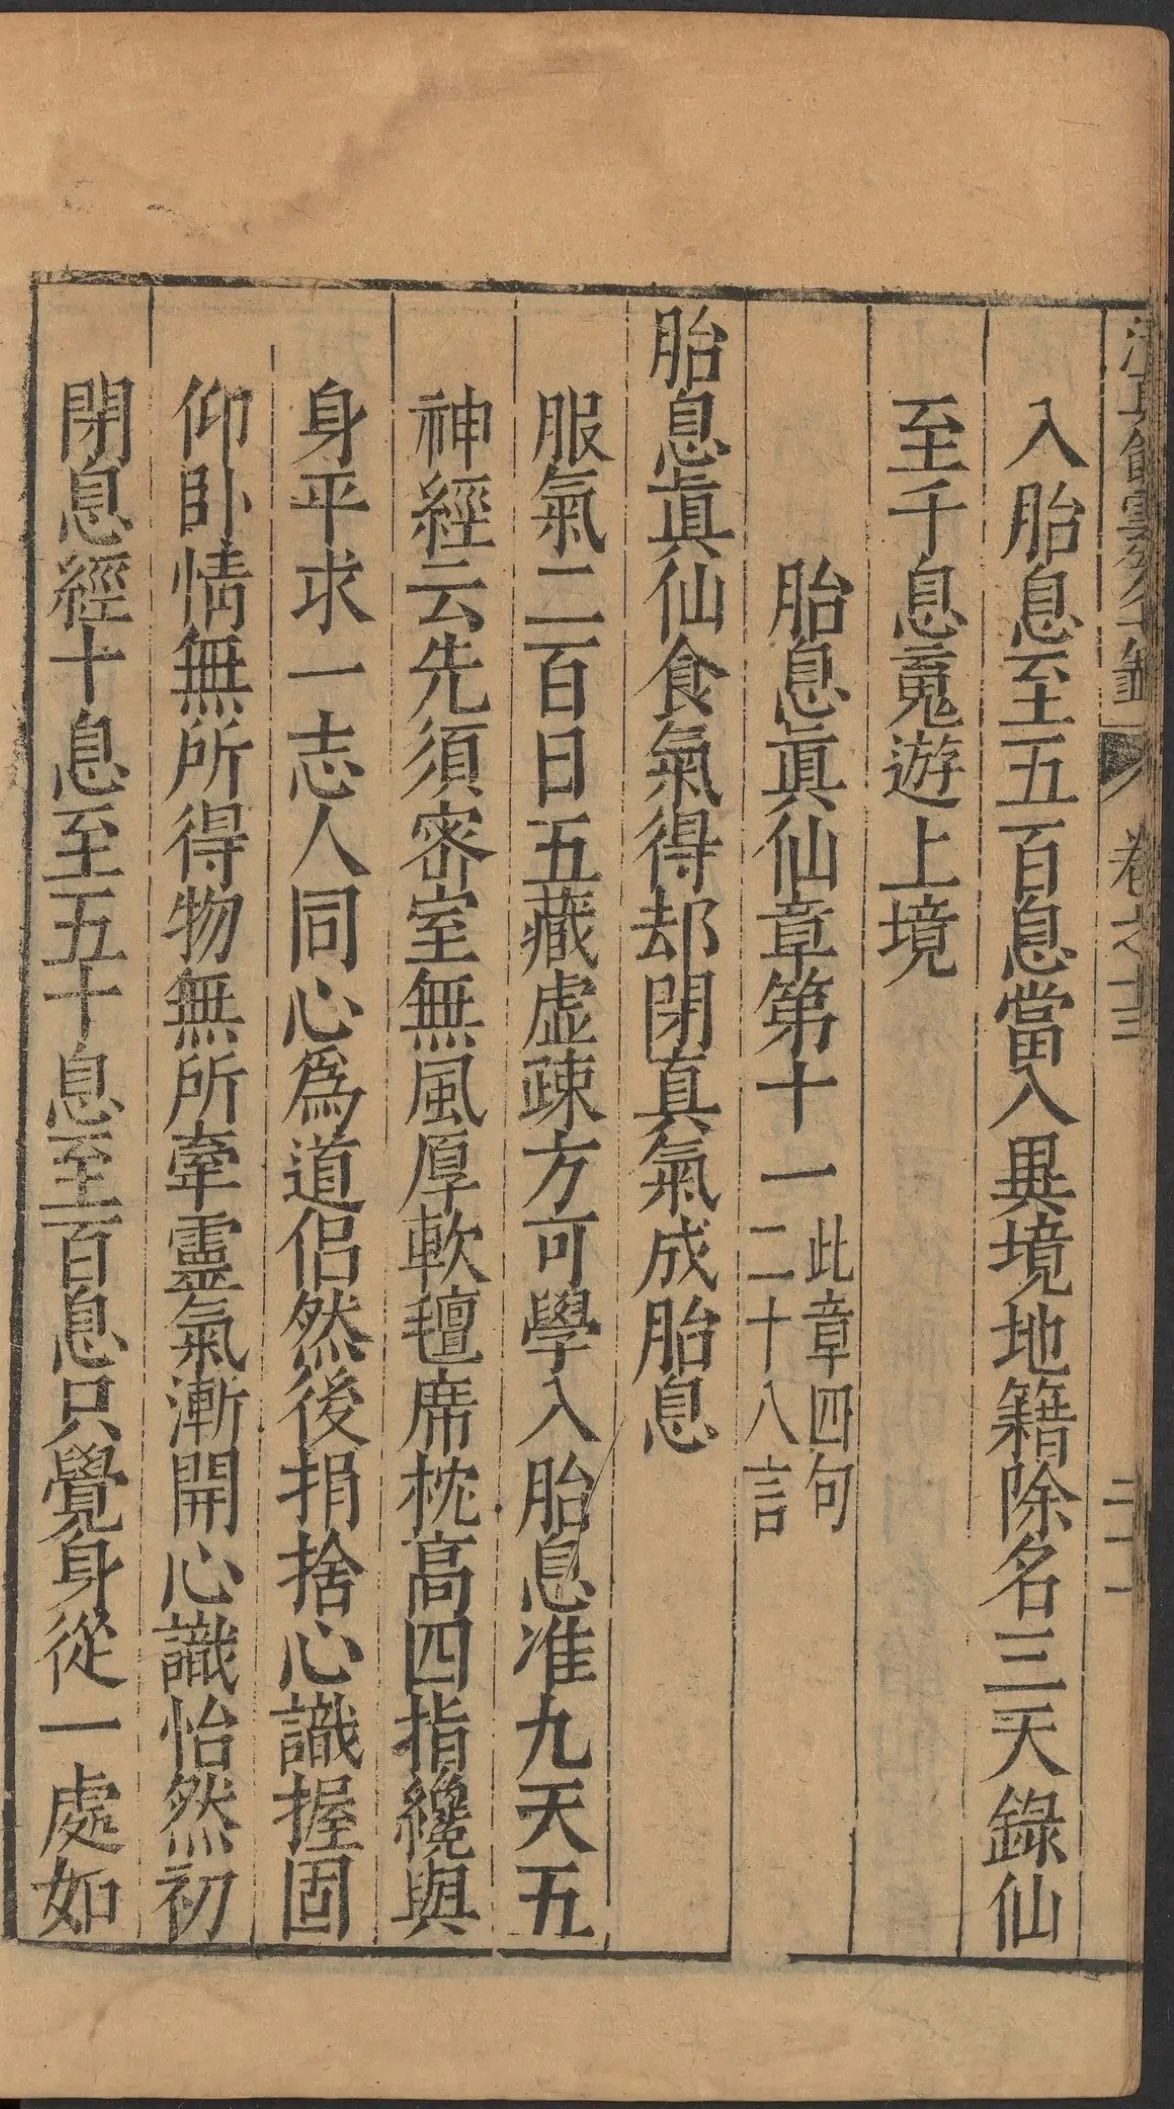 卷之十三
二十一
入胎息至五百息當入異境地籍除名三天錄仙
至千息䰟遊上境
胎息眞仙章第十一
此章四句
二十八言
胎息眞仙食氣得却閉真氣成胎息
服氣二百日五藏虚疎方可學入胎息准九天五
神經云先須密室無風厚軟氊席枕高四指纔與
身平求一志人同心爲道侶然後捐捨心識握固
仰卧情無所得物無所牽靈氣漸開心識怡然初
閉息經十息至五十息至百息只覺身從一處如